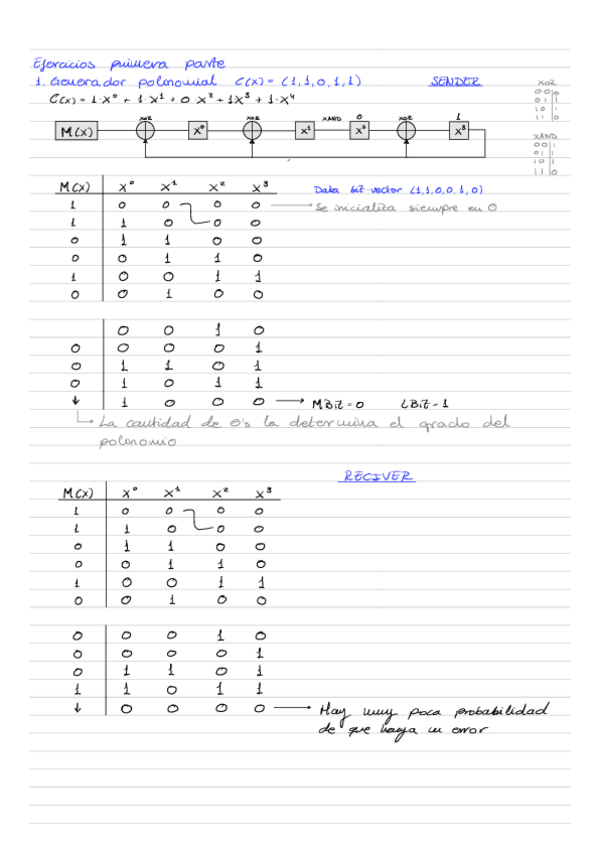 Ejercicios primera parte
1. Generador polinomial C(x) = (1,1,0,1,1) SENDER
C(x) = 1·X⁰ + 1·X¹ + 0·X² + 1X³ + 1·X⁴
XOR
0 0 0
0 1 1
1 0 1
1 1 0
XAND
0 0 1
0 1 1
1 0 1
1 1 0
XOR XOR XAND 0 XOR 1
M(X) X⁰ X¹ X² X³
M(X) X⁰ X¹ X² X³
Data bit vector (1,1,0,0,1,0)
1 0 0 0 0 → Se inicializa siempre en 0
1 1 0 0 0
0 1 1 0 0
0 0 1 1 0
1 0 0 1 1
0 0 1 0 0
0 0 1 0
0 0 0 0 1
0 1 1 0 1
0 1 0 1 1
↓ 1 0 0 0 → MBit=0 LBit=1
La cantidad de 0's la determina el grado del
polonomio
RECIVER
M(X) X⁰ X¹ X² X³
1 0 0 0 0
1 1 0 0 0
0 1 1 0 0
0 0 1 1 0
1 0 0 1 1
0 0 1 0 0
0 0 0 1 0
0 0 0 0 1
0 1 1 0 1
1 1 0 1 1
↓ 0 0 0 0 → Hay muy poca probabilidad
de que haya un error